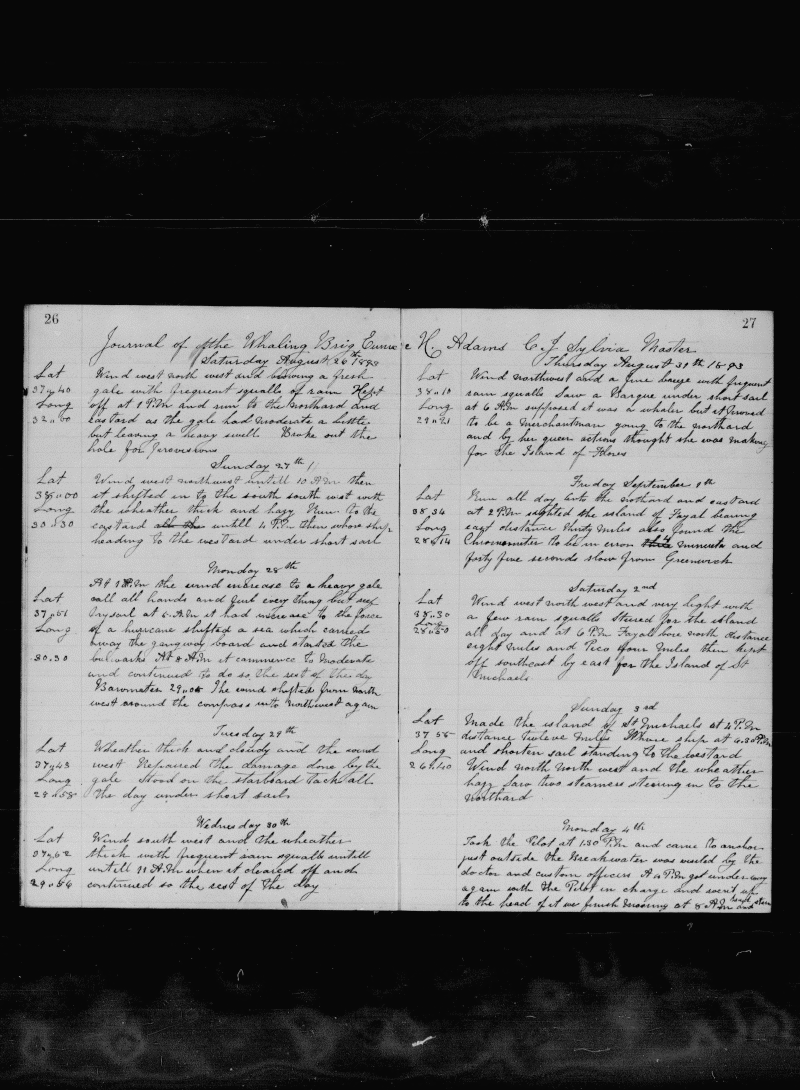 26
Journal of the Whaling Brig Eunice H. Adams C J Sylvia Master
Saturday August 26th 1893
Lat
37 " 40
Long
32 " 00
Wind west north west and blowing a fresh
gale with frequent squalls of rain Kept
off at 1 P.M and run to the northard and
eastard as the gale had moderate a little
but leaving a heavy swell Broke out the
hole for provisions
Sunday 27th
Lat
38 " 00
Long
30 " 30
Wind west northwest untill 10 A.M then
it shifted in to the south south west with
the wheather thick and hazy Run to the
eastard untill 4 P.M then whore ship
heading to the westard under short sail
Monday 28th
Lat
37 " 51
Long
30.30
At 1 A.M the wind increase to a heavy gale
call all hands and furl every thing but
trysail at 5 A.M it had increase to the force
of a huricane shifted a sea which carried
away the gangway board and started the
bulwarks At 8 A.M it commence to moderate
and continued to do so the rest of the day
Barometer 29 " 05 The wind shifted from north
west around the compass into northwest again
Tuesday 29th
Lat
37 " 43
Long
29 " 58
Wheather thick and cloudy and the wind
west Repaired the damage done by the
gale Stood on the starboard tack all
the day under short sail
Wednesday 30th
Lat
37 " 52
Long
29 " 56
Wind south west and the wheather
thick with frequent rain squalls untill
untill 11 A.M when it cleared off and
continued so the rest of the day
27
Thursday August 31th 1893
Lat
38 " 10
Long
29 " 21
Wind northwest and a fine breeze with frequent
rain squalls Saw a Barque under short sail
at 6 A.M supposed it was a whaler but it proved
to be a merchantman going to the northard
and by her queer actions thought she was making
for the Island of Flores
Friday September 1th
Lat
38.34
Long
28 " 14
Run all day to the northard and eastard
at 2 P.M sighted the island of Fayal bearing
east distance thirty miles also found the
Chronometer to be in erron 4 minuets and
forty five seconds slow from Greenwich
Saturday 2nd
Lat
38 " 30
Long
28 " 50
Wind west north west and very light with
a few rain squalls Steered for the island
all day and at 6 P.M Fayal bore north distance
eight miles and Pico four miles then kept
off southeast by east for the Island of St
Michaels
Sunday 3rd
Lat
37 55
Long
26 " 40
Made the island of St Michaels at 4 P.M
distance twleve miles Whore ship at 6.30 P.M
and shorten sail standing to the westard
Wind north north west and the wheather
hazy Saw two steamers steering in to the
northard
Monday 4th
Took the Pilot at 1.30 P.M and came to anchor
just outside the Breakwater was visited by the
doctor and custom officers At 4 P.M got under way
again with the Pilot in charge and went up
to the head of it we finish mooring at 8 A.M head and stern